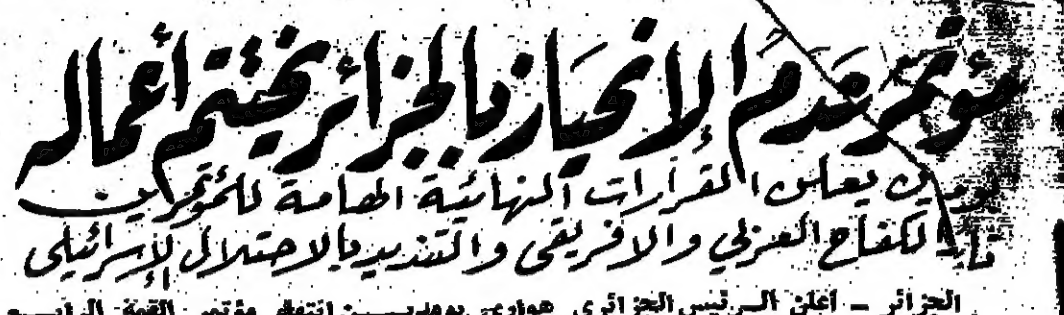 مؤتمر عدم الانحياز بالجزائر يختتم أعماله
بومدين يعلن القرارات النهائية الهامة للمؤتمرين
تأييد الكفاح العربي والافريقي والتنديد بالاحتلال الإسرائيلي
الجزائر - أعلن الرئيس الجزائري هواري بومديـــــن انتهاء مؤتمر القمة الرابـــع